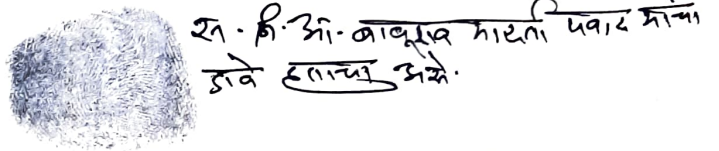 स्व. नि. आं. बाबूराव मारुती पवार यांचा
डावे हाताचा असे.